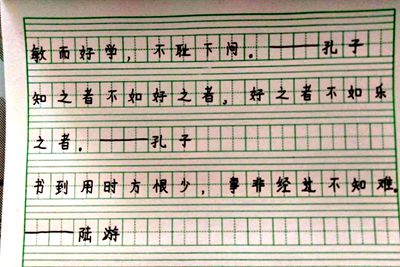 敏而好学，不耻下问。——孔子
知之者不如好之者，好之者不如乐
之者。——孔子
书到用时方恨少，事非经过不知难。
——陆游